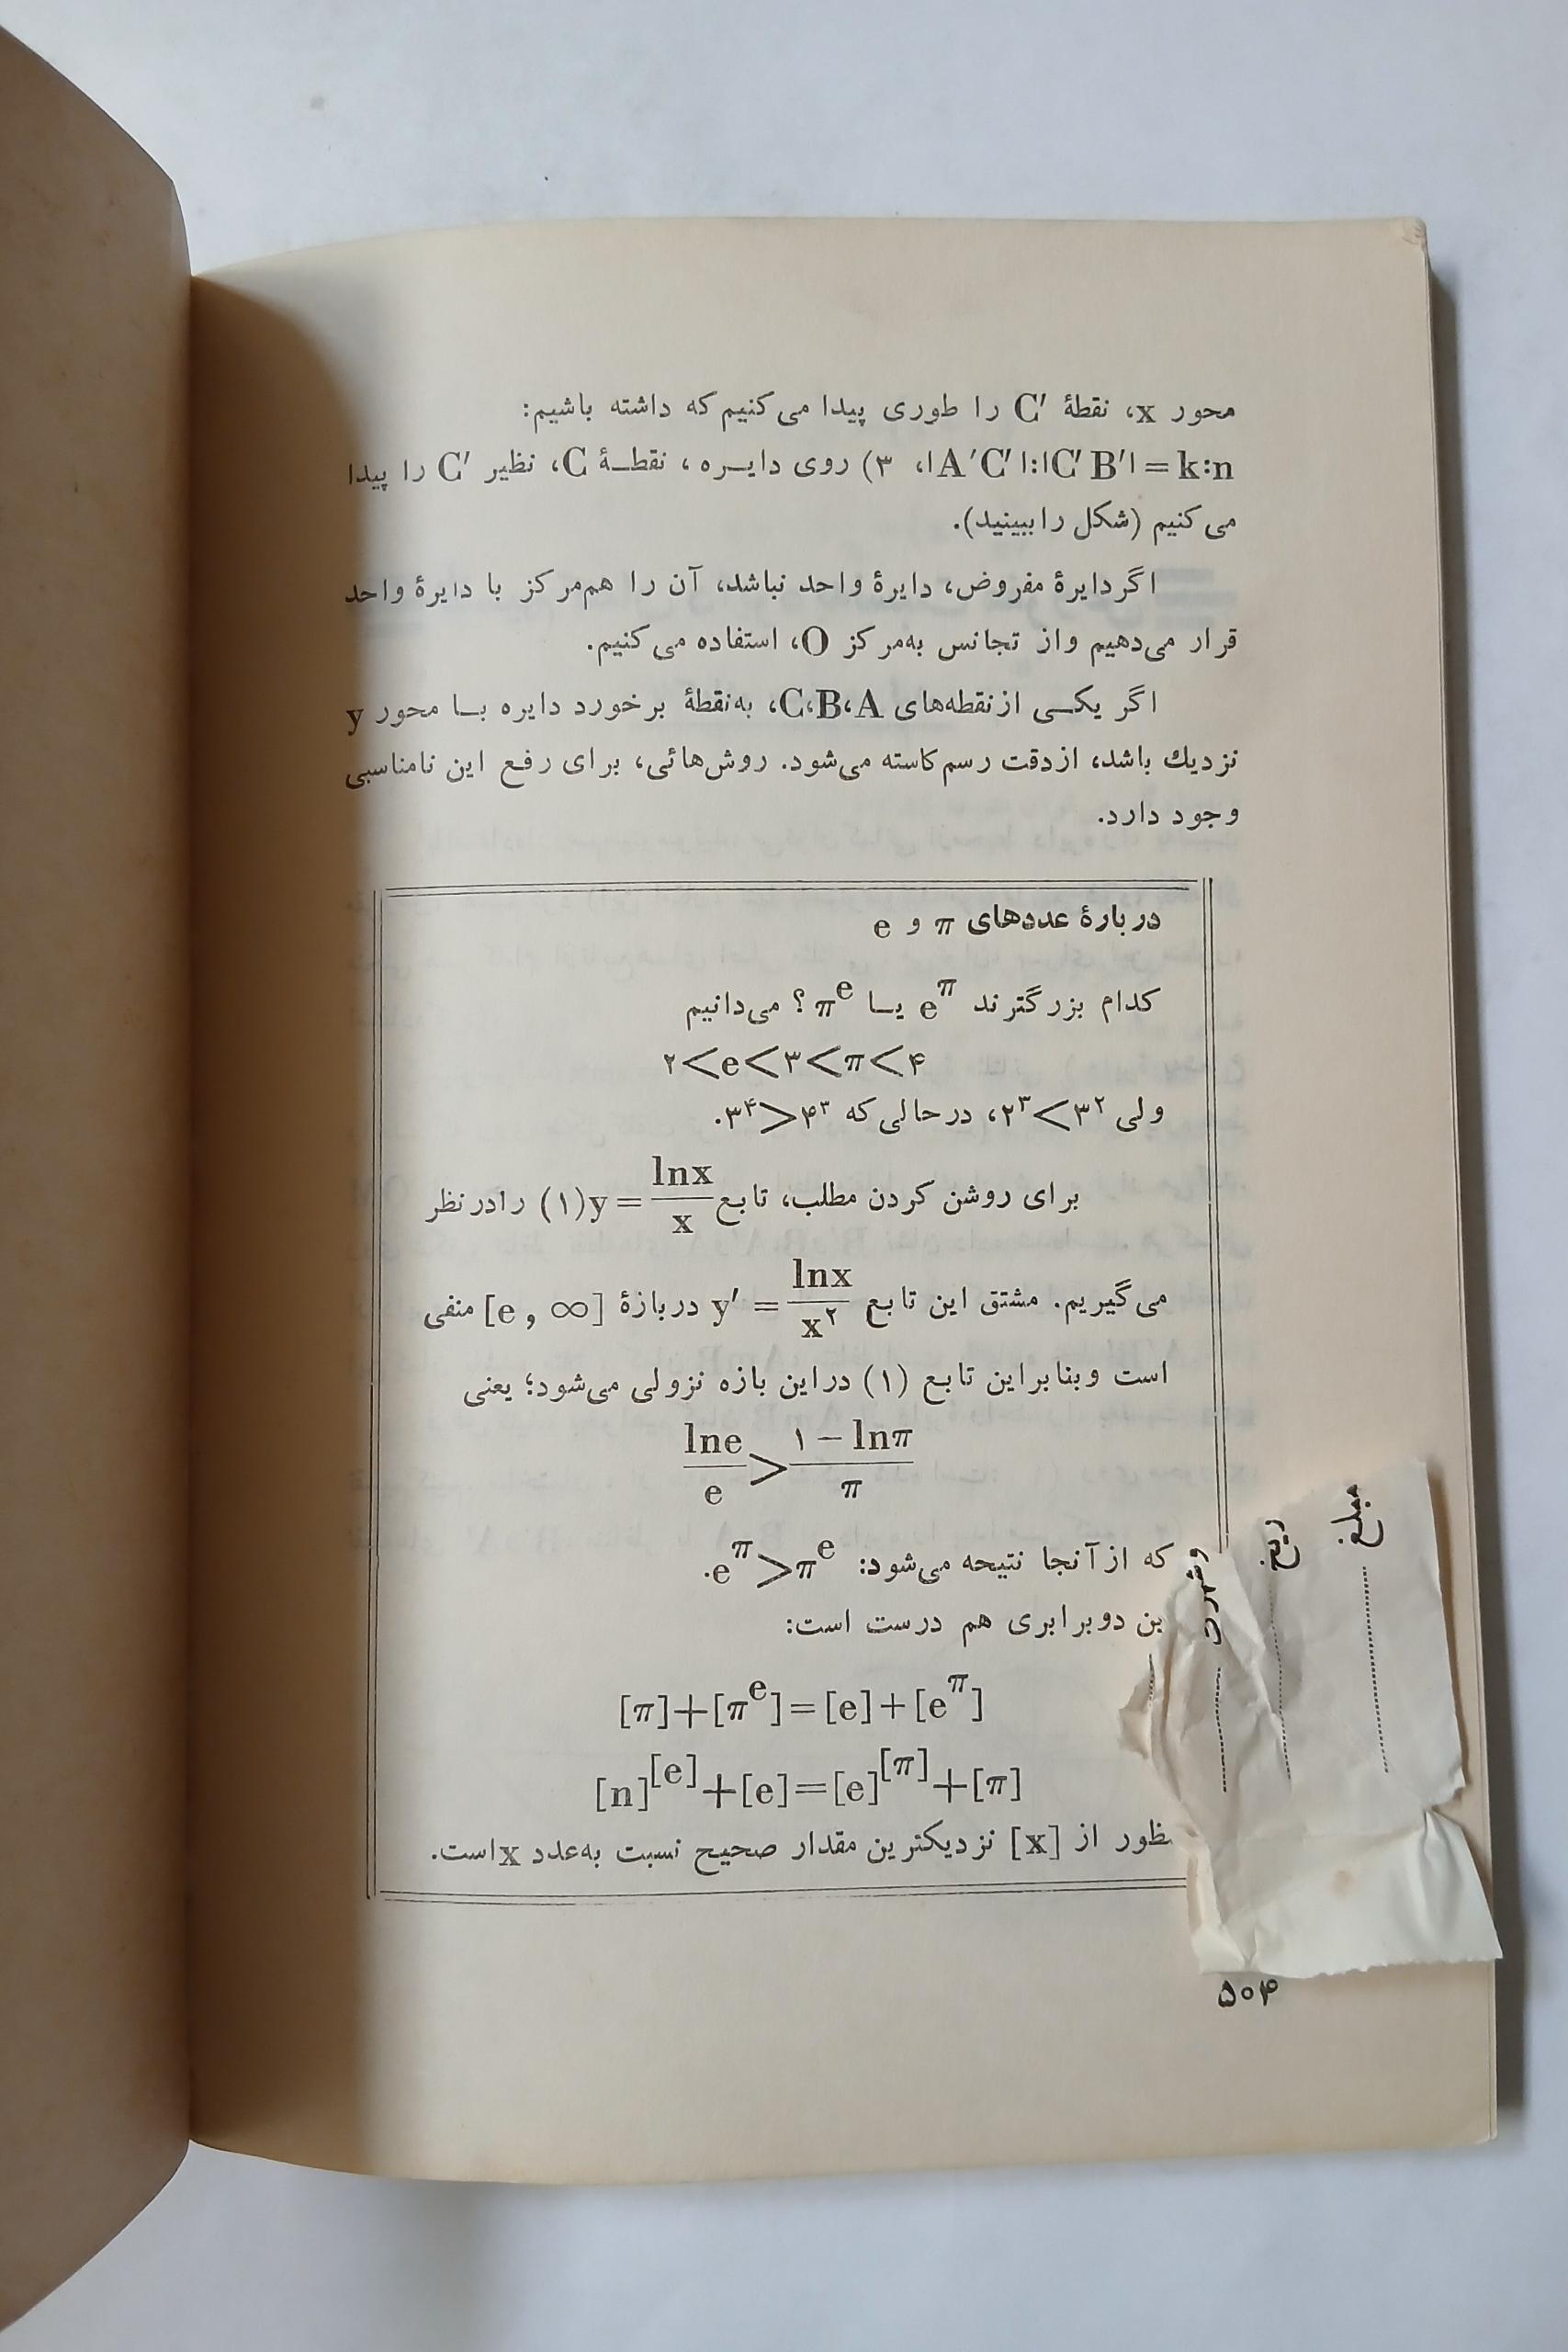 محور x، نقطهٔ C′ را طوری پیدا می‌کنیم که داشته باشیم:
|A′C′|:|C′B′|=k:n، ۳) روی دایره، نقطهٔ C، نظیر C′ را پیدا
می‌کنیم (شکل را ببینید).
اگر دایرهٔ مفروض، دایرهٔ واحد نباشد، آن را هم‌مرکز با دایرهٔ واحد
قرار می‌دهیم و از تجانس به‌مرکز O، استفاده می‌کنیم.
اگر یکی از نقطه‌های C،B،A، به‌نقطهٔ برخورد دایره با محور y
نزدیك باشد، از دقت رسم کاسته می‌شود. روش‌هائی، برای رفع این نامناسبی
وجود دارد.
دربارهٔ عددهای π و e
کدام بزرگترند e^π یا π^e؟ می‌دانیم
۲<e<۳<π<۴
ولی ۲^۳<۳^۲، در حالی که ۳^۴>۴^۳.
برای روشن کردن مطلب، تابع y=lnx/x (۱) را در نظر
می‌گیریم. مشتق این تابع y′=lnx/x^۲ در بازهٔ [e, ∞] منفی
است و بنابراین تابع (۱) در این بازه نزولی می‌شود؛ یعنی
lne/e > (۱−lnπ)/π
که از آنجا نتیحه می‌شود: e^π>π^e.
ین دو برابری هم درست است:
[π]+[π^e]=[e]+[e^π]
[n]^[e]+[e]=[e]^[π]+[π]
ظور از [x] نزدیکترین مقدار صحیح نسبت به‌عدد x است.
مبلغ
ریخ
۵۰۴